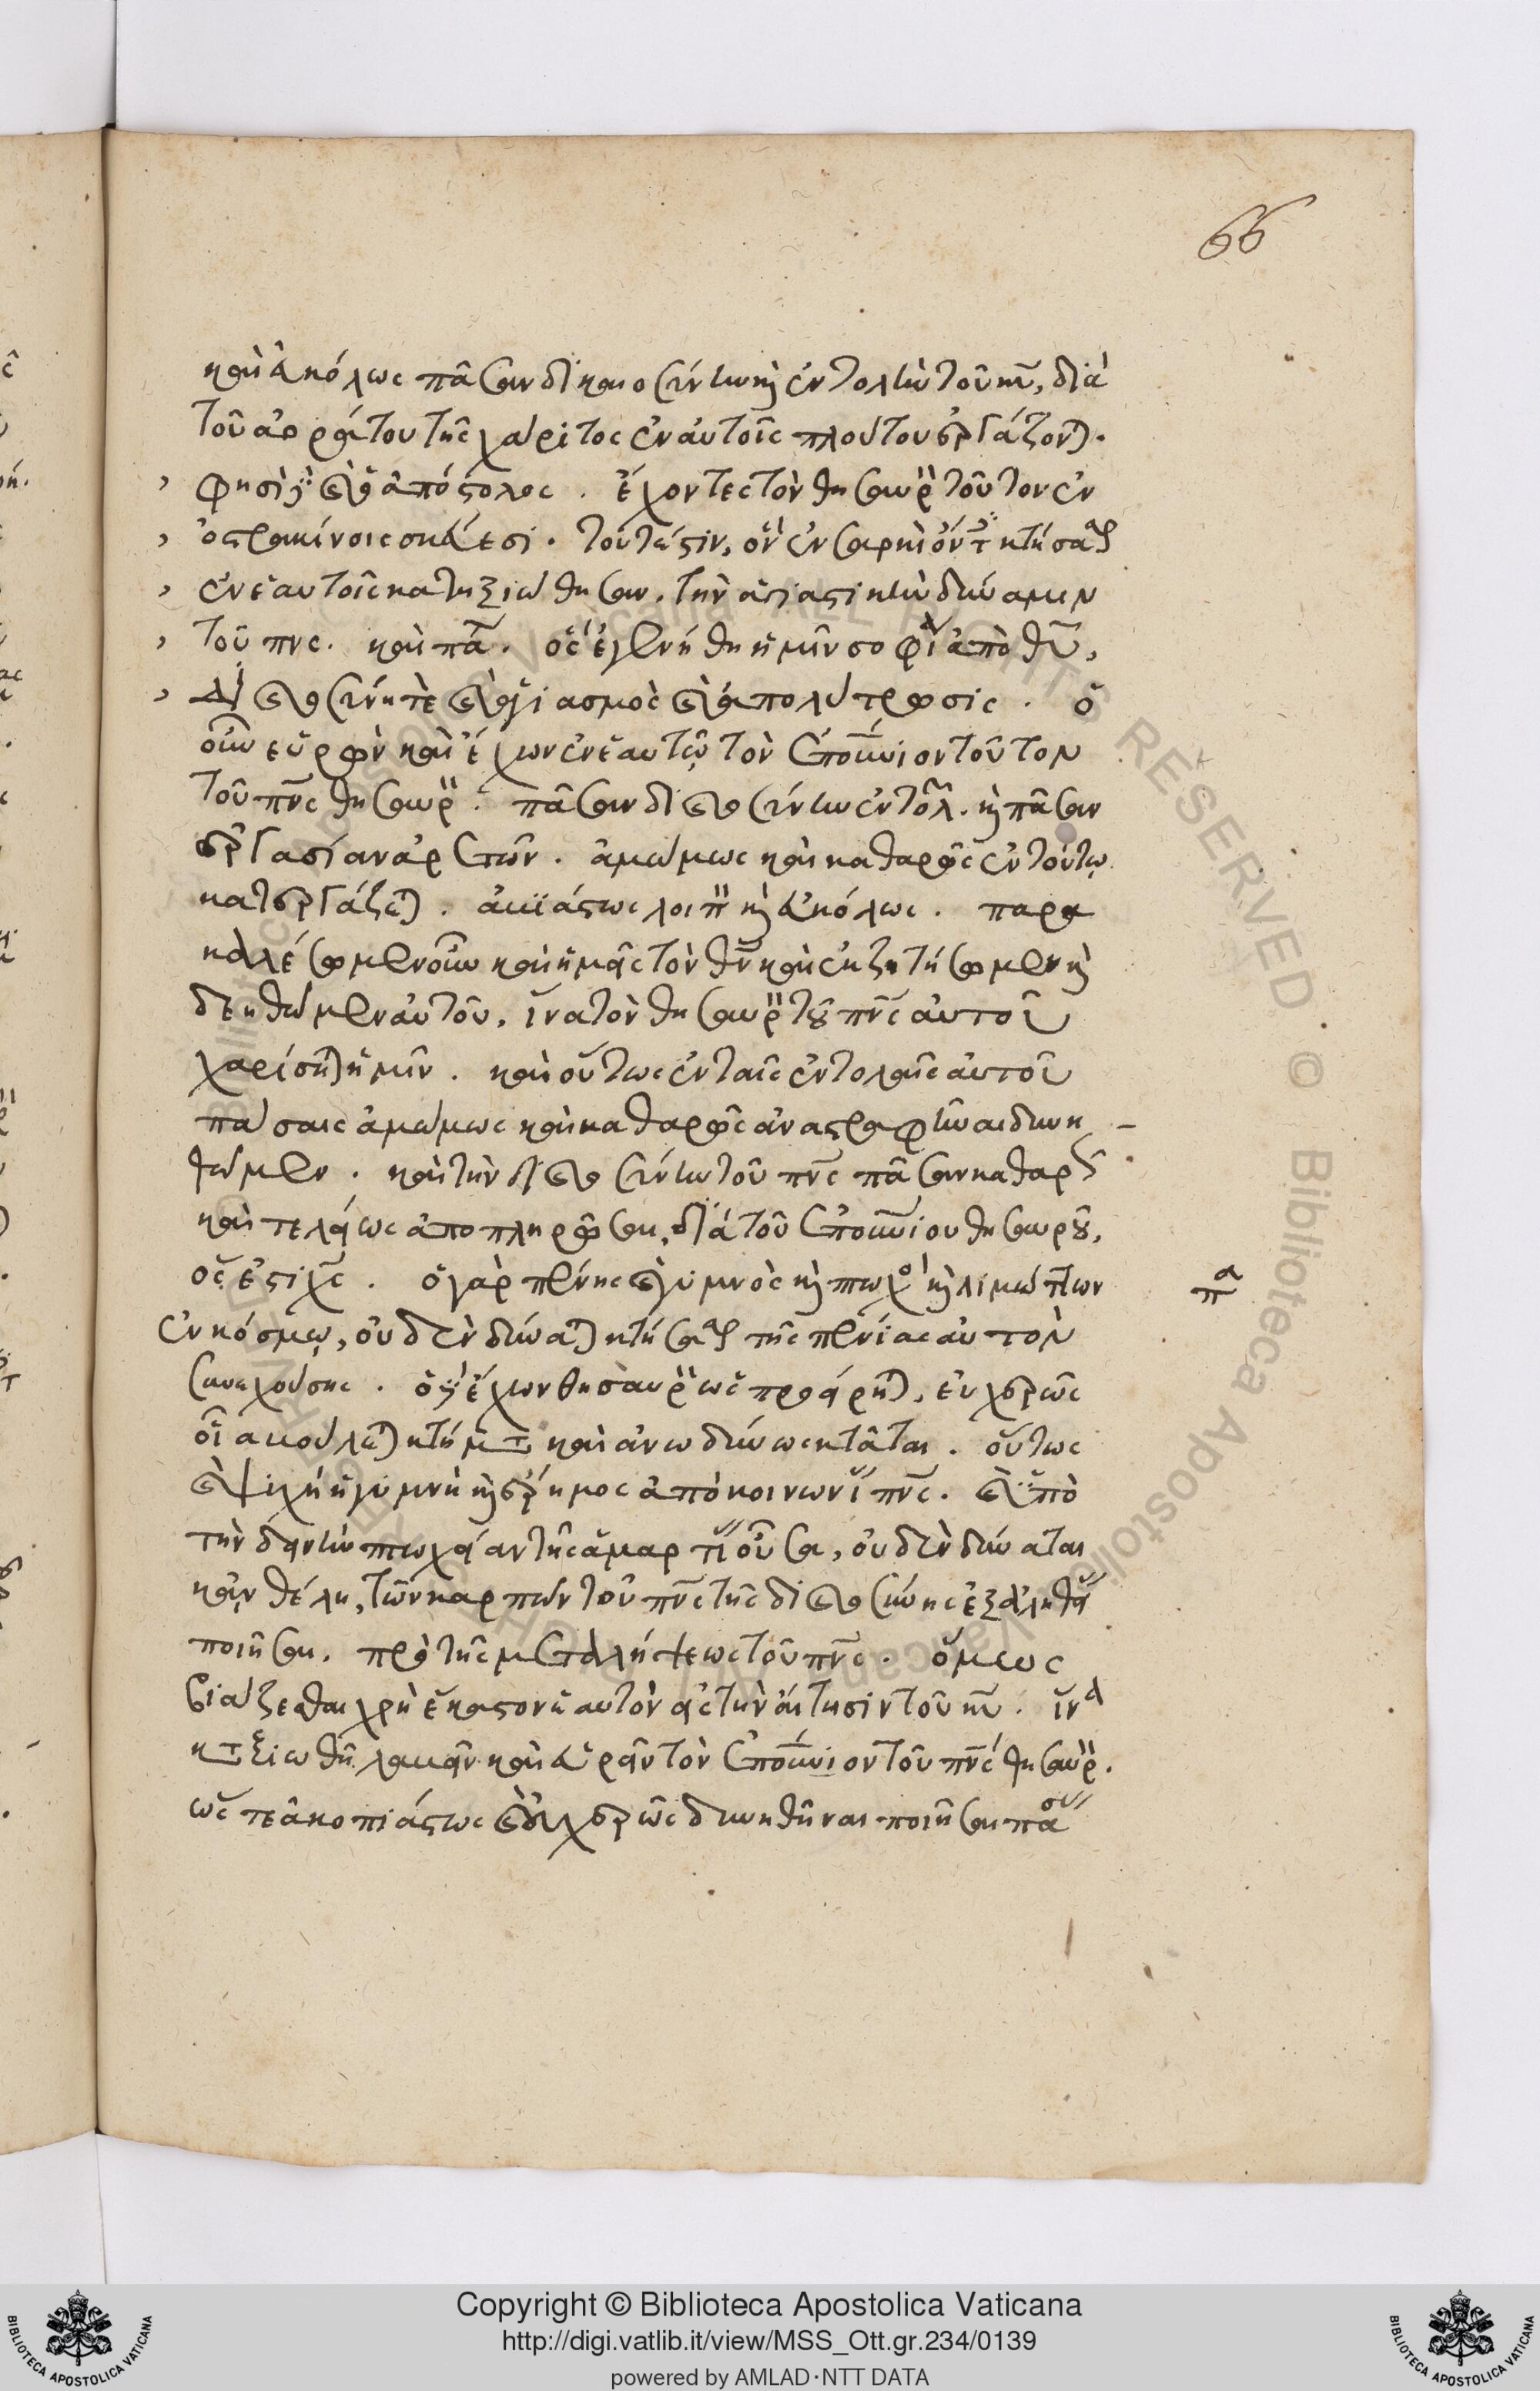 66
καὶ εὐκόλως πᾶσαν δικαιοσύνην κ̀ ἐντολὴν τοῦ κυ̅, διὰ
τοῦ ἀοράτου τῆς χάριτος ἐν αὐτοῖς πλούτου ἐργάζοντ(αι).
φησὶ γ(ὰρ) καὶ ὁ ἀπόστολος. ἔχοντες τὸν θησαυρ(ὸν) τοῦτον ἐν
ὀστρακίνοις σκεύεσι. τουτέστιν, ὃν ἐν σαρκὶ ὄντ(ες) κτήσασθ(αι)
ἐν ἑαυτοῖς κατηξιώθησαν, τὴν ἁγιαστικὴν δύναμιν
τοῦ πνς. καὶ πά(λιν). ὃς ἐγενήθη ἡμῖν σοφία ἀπὸ θυ̅,
δικαιοσύνη τὲ καὶ ἁγιασμὸς καὶ ἀπολύτρωσις. ὁ
οὖν εὑρὼν καὶ ἔχων ἐν ἑαυτῷ τὸν ἐπουνιον τοῦτον
τοῦ πνς θησαυρ(ὸν). πᾶσαν δικαιοσύνην ἐντολ(ῶν). κ̀ πᾶσαν
ἐργασίαν ἀρετῶν. ἀμώμως καὶ καθαρῶς ἐν τούτῳ
κατεργάζετ(αι). ἀβιάστως λοιπ(ὸν) κ̀ εὐκόλως. παρα
καλέσωμεν οὖν καὶ ἡμεῖς τὸν θν̅ καὶ ἐκζητήσωμεν κ̀
δεηθῶμεν αὐτοῦ, ἵνα τὸν θησαυρ(ὸν) τοῦ πνς αὐτοῦ
χαρίσητ(αι) ἡμῖν. καὶ οὕτως ἐν ταῖς ἐντολαῖς αὐτοῦ
πάσαις ἀμώμως καὶ καθαρῶς ἀναστραφῆναι δυνη
θῶμεν. καὶ τὴν δικαιοσύνην τοῦ πνς πᾶσαν καθαρῶς
καὶ τελείως ἀποπληρῶσαι, διὰ τοῦ ἐπουνίου θησαυροῦ,
ὅς ἐστι χς. ὁ γὰρ πένης καὶ γυμνὸς κ̀ πτωχὸ(ς) κ̀ λιμώττων
ἐν κόσμῳ, οὐδὲν δύνατ(αι) κτήσασθ(αι) τῆς πενίας αὐτὸν
συνεχούσης. ὁ γ(ὰρ) ἔχων θησαυρ(ὸν) ὡς προείρητ(αι), εὐχερῶς
οἷα βούλετ(αι) κτήματ(α) καὶ ἀνωδύνως κτᾶται. οὕτως
καὶ ψυχὴ ἡ γυμνὴ κ̀ ἔρημος ἀπὸ κοινωνί(ας) πνς. καὶ ὑπὸ
τὴν δεινὴν πτωχείαν τῆς ἁμαρτί(ας) οὖσα, οὐδὲν δύναται
κἂν θέλη, τῶν καρπῶν τοῦ πνς τῆς δικαιοσύνης ἐξ ἀληθεί(ας)
ποιῆσαι. πρὸ τῆς μεταλήψεως τοῦ πνς. ὅμως
βιάζεσθαι χρὴ ἕκαστον ἑαυτὸν εἰς τὴν αἴτησιν τοῦ κυ̅. ἵνα
κατ(α)ξιωθῆ λαβεῖν καὶ εὑρεῖν τὸν ἐπουνιον τοῦ πνς θησαυρ(όν).
ὥστε ἀκοπιάστως καὶ εὐχερῶς δυνηθῆναι ποιῆσαι πάσ(ας)